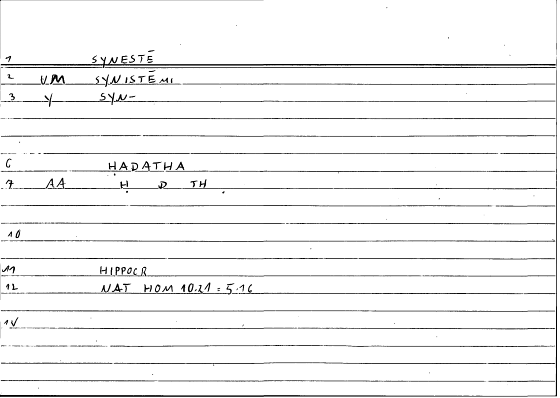 1 SYNESTĒ
2 VM SYNISTĒMI
3 Y SYN-
6 ḤADATHA
7 AA Ḥ D TH
10
11 HIPPOCR
12 NAT HOM 10.21 = 5.16